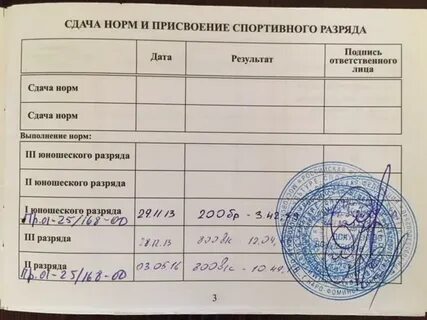 СДАЧА НОРМ И ПРИСВОЕНИЕ СПОРТИВНОГО РАЗРЯДА
Дата Результат Подпись ответственного лица
Сдача норм
Сдача норм
Выполнение норм:
III юношеского разряда
II юношеского разряда
I юношеского разряда 29.11.13 200бр - 3.42,
Пр.01-25/168-ОД
III разряда 28.12.13 800вк 12.04,
II разряда 03.05.16 800 в/с - 10.44,
Пр.01-25/168-ОД
3